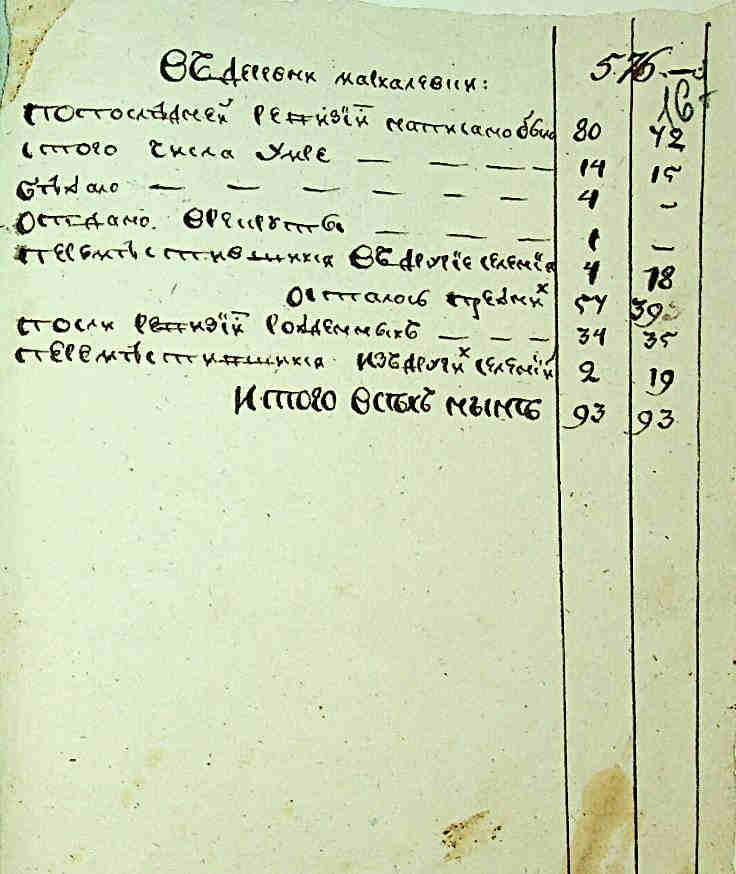 Въ деревни Маскалевки: 576
16
по последней ревизіи написано было 80 72
с того числа умре — — — — 14 15
бежало — — — — — — 4 —
отдано в рекруты — — — 1 —
переместившихся въ другіе селенія 4 18
осталось прежних 57 39
после ревизіи рожденныхъ — — — 34 35
переместившихся изъ других селеній 2 19
Итого всехъ ныне 93 93